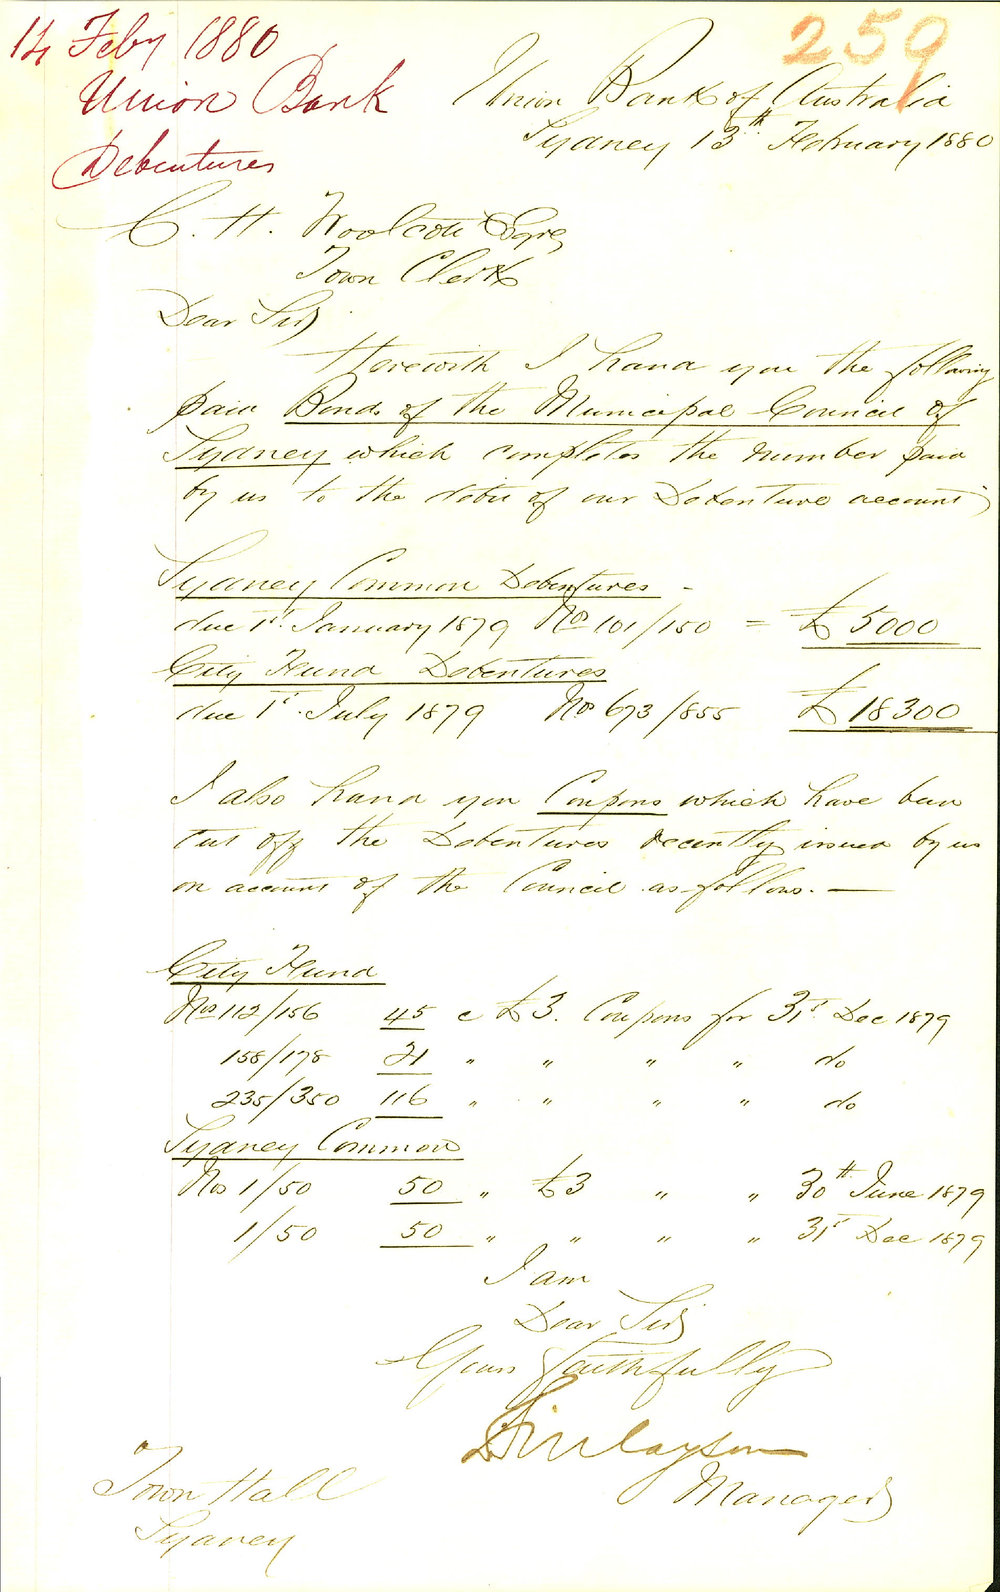 14 Feby 1880
Union Bank
Debentures
259
Union Bank of Australia
Sydney 13th February 1880
C. H. Woolcott Esqre
Town Clerk
Dear Sir
Herewith I hand you the following
paid Bonds of the Municipal Council of
Sydney which completes the number paid
by us to the debit of our Debenture account
Sydney Common Debentures -
due 1st January 1879 Nos 101/150 = £5000
City Fund Debentures
due 1st July 1879 Nos 673/855 £18300
I also hand you Coupons which have been
cut off the Debentures recently issued by us
on account of the Council as follows. —
City Fund
Nos 112/156 45 @ £3. Coupons for 31st Dec 1879
158/178 21 " " " " do
235/350 116 " " " " do
Sydney Common
Nos 1/50 50 " £3 " " 30th June 1879
1/50 50 " " " " 31st Dec 1879
I am
Dear Sir
Yours faithfully
Finlayson
Manager
Town Hall
Sydney